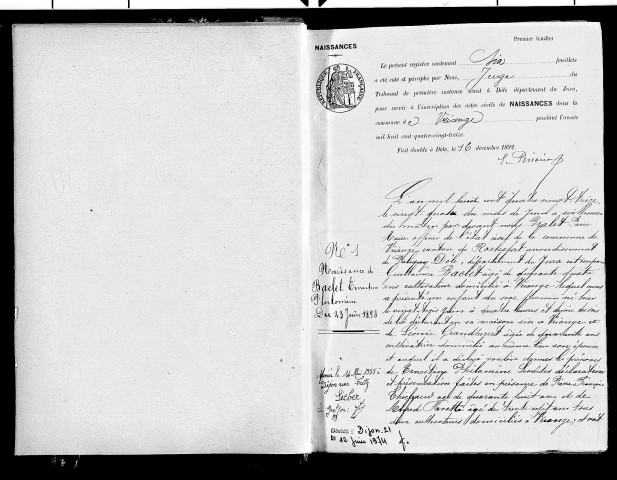 Premier feuillet
NAISSANCES
Le présent registre contenant Six feuillets
a été coté et paraphé par Nous, Juge du
Tribunal de première instance séant à Dôle département du Jura,
pour servir à l'inscription des actes civils de NAISSANCES dans la
commune de Vriange pendant l'année
mil huit cent quatre-vingt-treize.
Fait double à Dôle, le 16 décembre 1892.
RÉPUBLIQUE FRANÇAISE
L'an mil huit cent quatre vingt treize
le vingt quatre du mois de Juin à six heures
du matin par devant nous
Maire officier de l'état civil de la commune de
Vriange canton de Rochefort arrondissement
de Dôle, département du Jura est comparu
Guillaume Baclet âgé de quatre
ans cultivateur domicilié à Vriange lequel nous
a présenté un enfant du sexe féminin né hier
le vingt trois juin à quatre heures et demie du soir
de lui déclarant en sa maison sise à Vriange et
de Léonie Grandperret âgée de quarante ans
cultivatrice domiciliée au même lieu son épouse
et auquel il a déclaré vouloir donner les prénoms
de Ernestine Philomène Lesdites déclaration
et présentation faites en présence de Pierre François
âgé de quarante huit ans et de
Alfred âgé de trente huit ans tous
deux cultivateurs domiciliés à Vriange, et ont
N° 1
Naissance de
Baclet Ernestine
Philomène
Du 23 Juin 1893
Mariée le 14 Mai 1955 à
Dijon avec Fritz
Sieber
Le Greffier:
Décédée à Dijon 21
le 12 Juin 1974